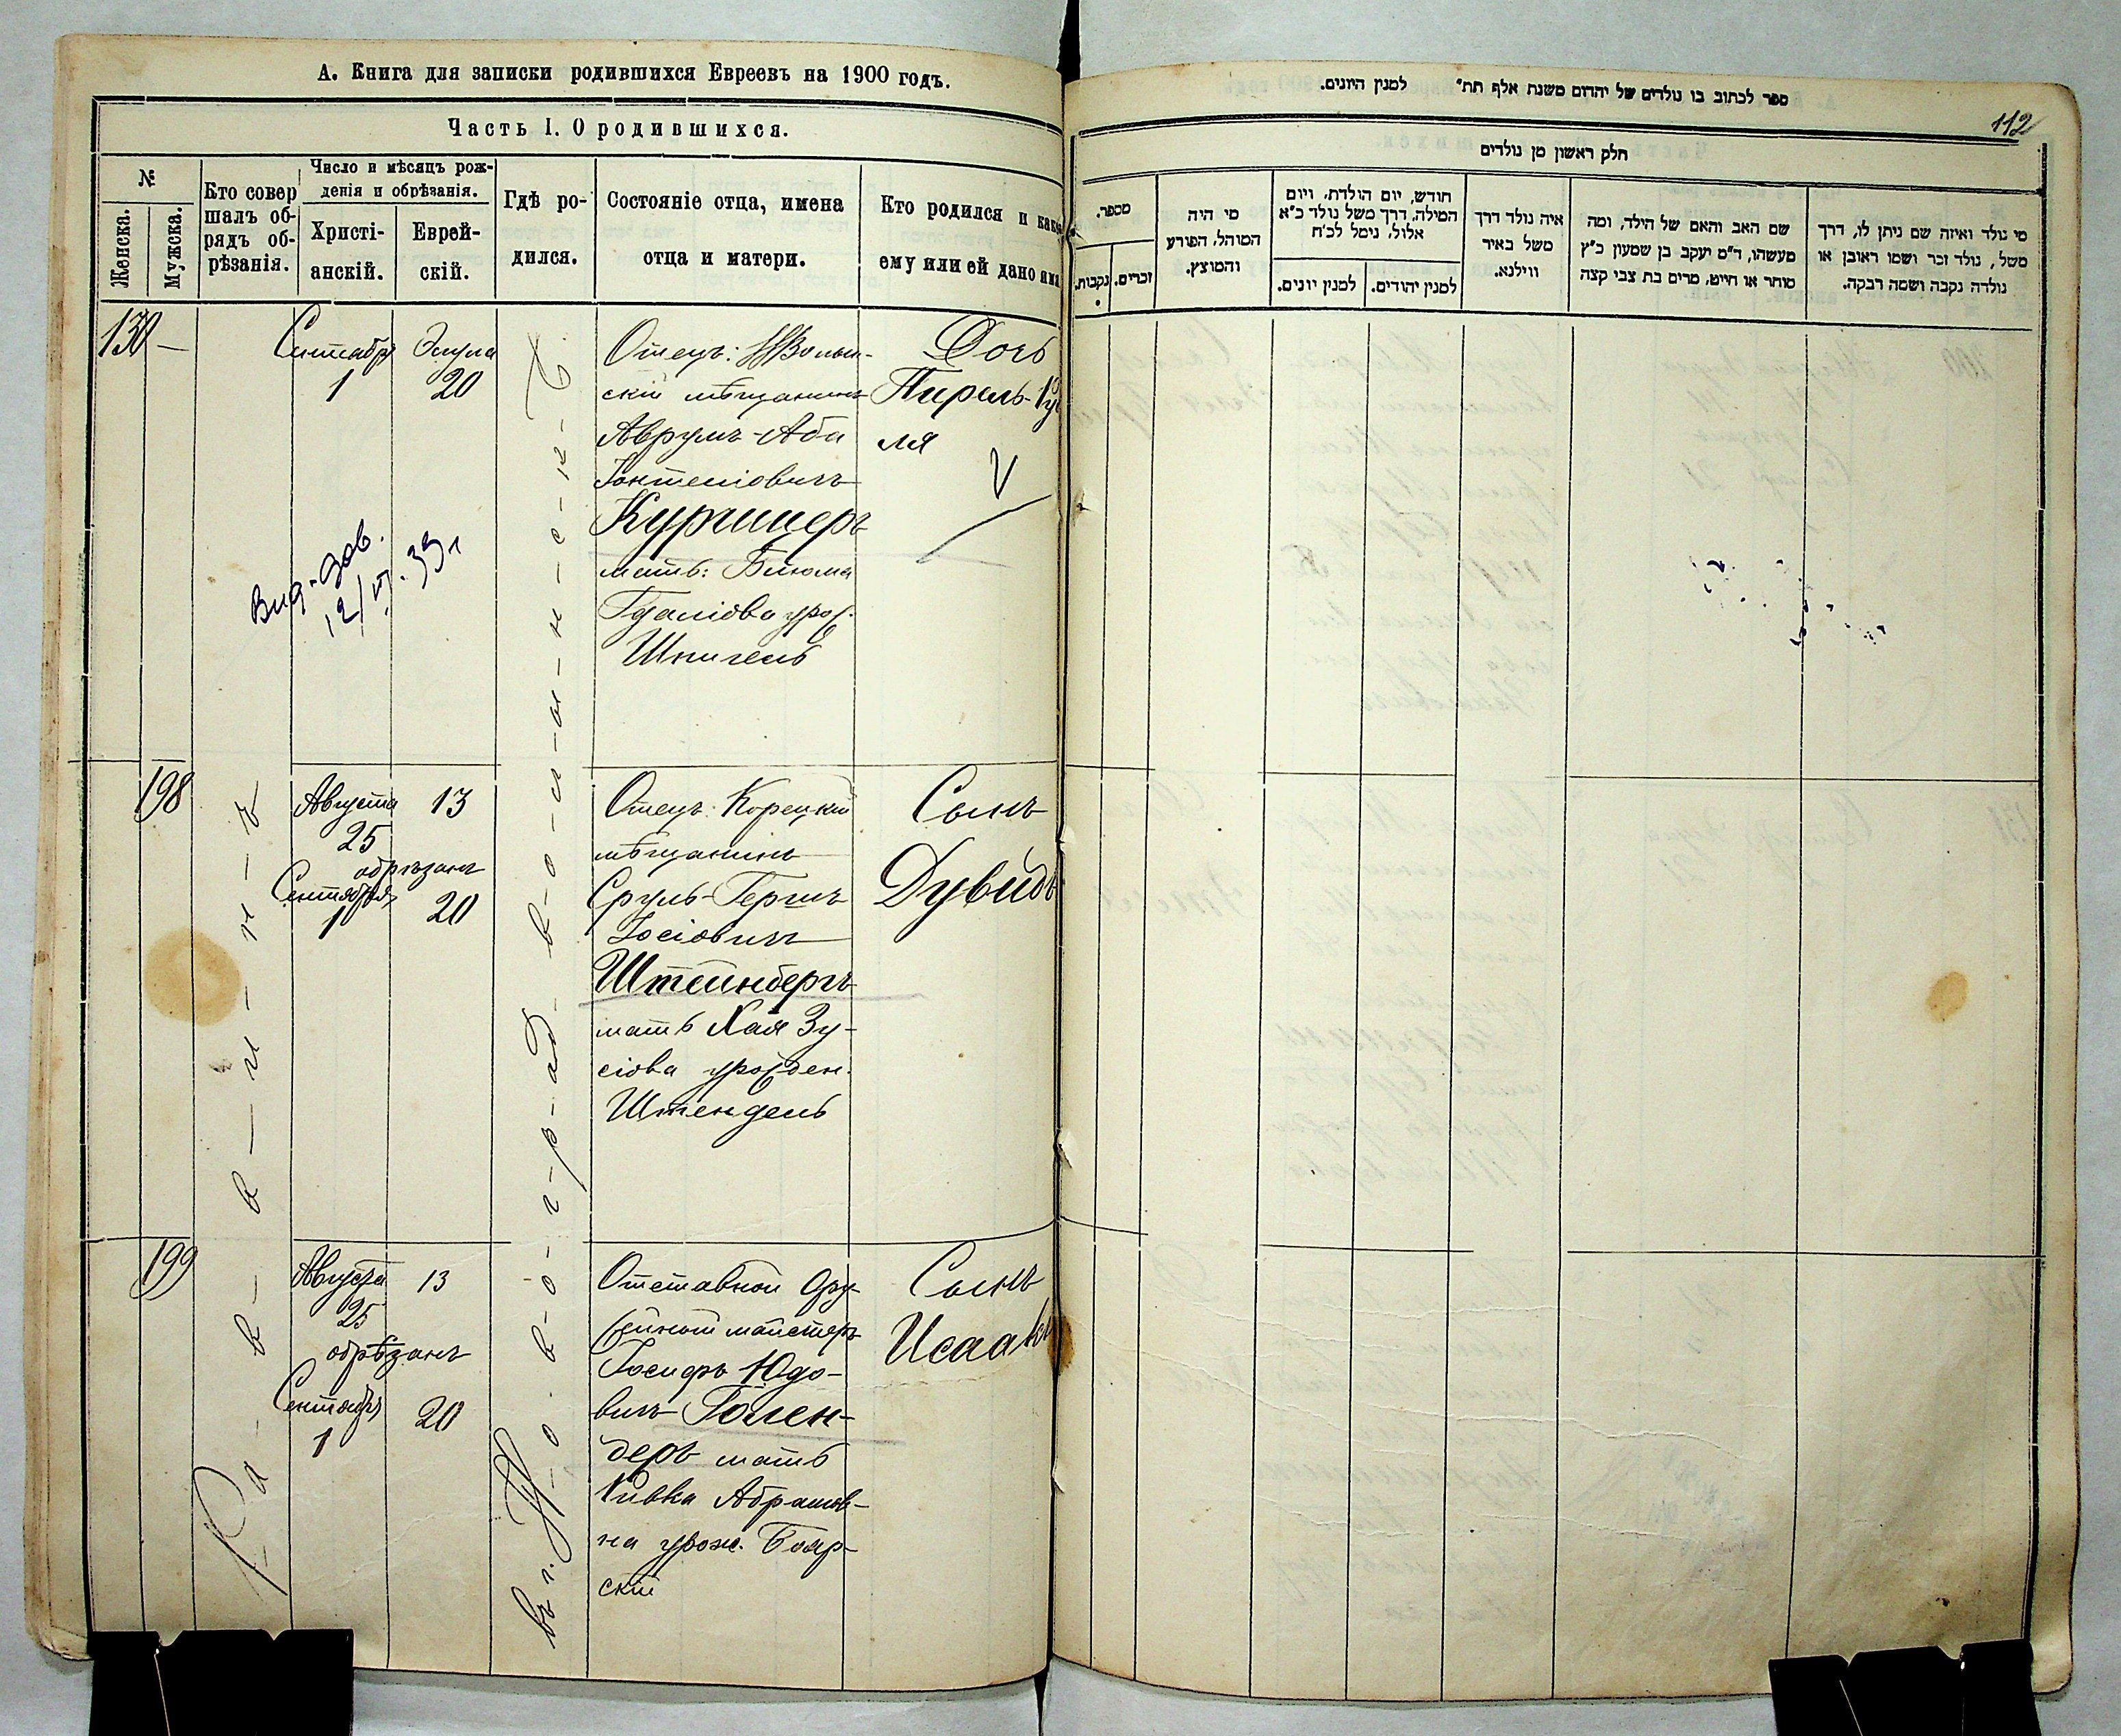 А. Книга для записки родившихся Евреевъ на 1900 годъ.
Часть I. О родившихся.
№
Женска.
Мужска.
Кто совер
шалъ об-
рядъ об-
рѣзанія.
Число и мѣсяцъ рож-
денія и обрѣзанія.
Христі-
анскій.
Еврей-
скій.
Гдѣ ро-
дился.
Состояніе отца, имена
отца и матери.
Кто родился и како
ему или ей дано имя
130 —
Сентября
1
Элула
20
Отецъ:
скій мѣщанинъ
Аврумъ-Аба
Іонтеліовичъ
Куршнеръ
мать:
Гдаліова урож.
Шпигель
Дочь
Пирель-Ру
ля
V
Вид. дов.
12/VI. 39 г
198
Августа
25
13
обрѣзанъ
Сентября
1
20
Отецъ: Корецкій
мѣщанинъ
Сруль-Гершъ
Іосіовичъ
Штейнбергъ
мать Хая Зу-
сіова урожден.
Штендель
Сынъ
Дувидъ
199
Августа
25
13
обрѣзанъ
Сентября
1
20
Отставной Ору-
жейный мастеръ
Іосифъ Юдо-
вичъ Голен-
деръ мать
Ривка Абрамов-
на урож. Бояр-
скій
Сынъ
Исаакъ
Ра-в-в-и-н-ъ
ספר לכתוב בו נולדים של יהדום משנת אלף תת״ למנין היונים.
112
חלק ראשון מן נולדים
מספר.
נקבות.
זכרים.
מי היה
המוהל, הפורע
והמוצץ.
חודש, יום הולדת, ויום
המילה, דרך משל נולד כ״א
אלול, נימל לכ״ח
למנין יונים.
למנין יהודים.
איה נולד דרך
משל באיר
ווילנא.
שם האב והאם של הילד, ומה
מעשהו, ד״מ יעקב בן שמעון כ״ץ
סוחר או חייט, מרים בת צבי קצה
מי נולד ואיזה שם ניתן לו, דרך
משל, נולד זכר ושמו ראובן או
נולדה נקבה ושמה רבקה.